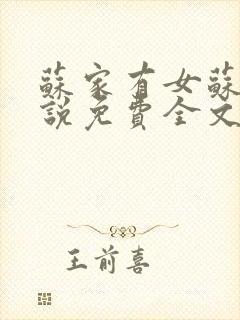 蘇家有女蘇
說免費全文
王前喜